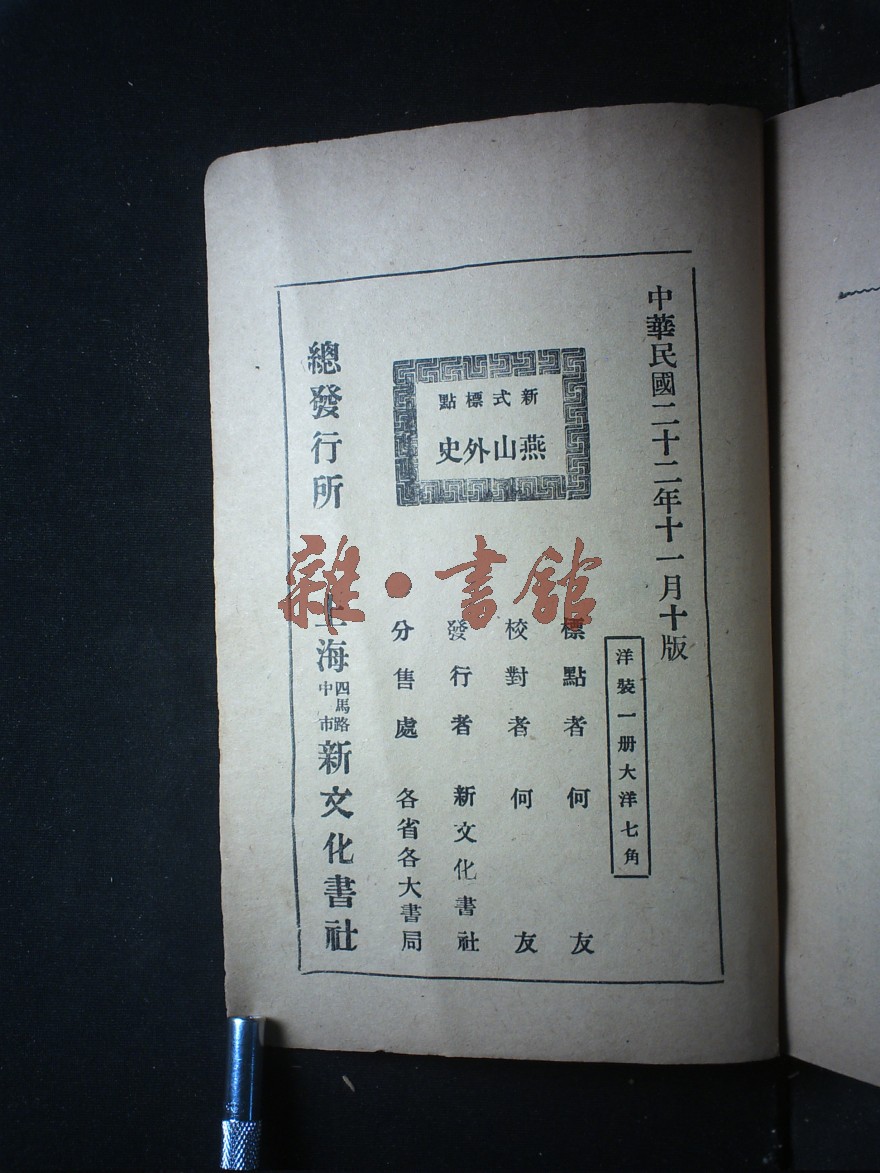 中華民國二十二年十一月十版
洋裝一册大洋七角
新式標點
燕山外史
標點者 何友
校對者 何友
發行者 新文化書社
分售處 各省各大書局
總發行所 上海四馬路中市新文化書社
雜·書館